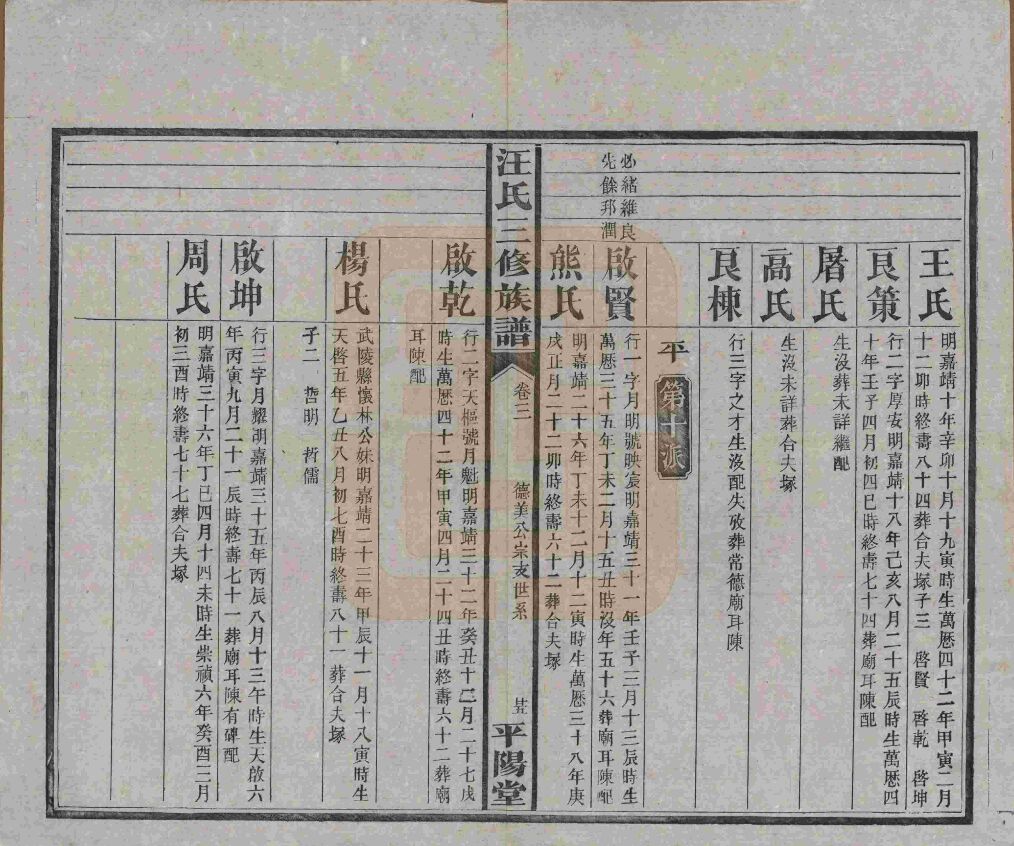 王氏
明嘉靖十年辛卯十月十九寅時生萬厯四十二年甲寅二月
十二卯時終壽八十四葬合夫塚子三　啓賢　啓乾　啓坤
艮策
行二字厚安明嘉靖十八年己亥八月二十五辰時生萬厯四
十年壬子四月初四巳時終壽七十四葬廟耳陳配
屠氏
生沒葬未詳繼配
高氏
生沒未詳葬合夫塚
艮棟
行三字之才生沒配失攷葬常德廟耳陳
必緒維良
先餘邦潤
平　第十派
啟賢
行一字月明號映宸明嘉靖三十一年壬子三月十三辰時生
萬厯三十五年丁未二月十五丑時沒年五十六葬廟耳陳配
熊氏
明嘉靖二十六年丁未十二月十二寅時生萬厯三十八年庚
戌正月二十二卯時終壽六十二葬合夫塚
汪氏三修族譜　卷三　德美公宗支世系　廿五　平陽堂
啟乾
行二字天樞號月魁明嘉靖三十二年癸丑十二月二十七戌
時生萬厯四十二年甲寅四月二十四丑時終壽六十二葬廟
耳陳配
楊氏
武陵縣懷林公妹明嘉靖二十三年甲辰十一月十八寅時生
天啓五年乙丑八月初七酉時終壽八十一葬合夫塚
子二　哲明　哲儒
啟坤
行三字月耀胡嘉靖三十五年丙辰八月十三午時生天啟六
年丙寅九月二十一辰時終壽七十一葬廟耳陳有碑配
周氏
明嘉靖三十六年丁巳四月十四未時生崇禎六年癸酉三月
初三酉時終壽七十七葬合夫塚